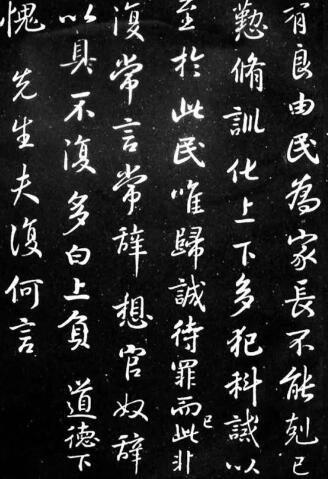 有良由民為家長不能剋己
懃脩訓化上下多犯科誡以
至於此民唯歸誠待罪而已此非
復常言常辭想官奴辭
以具不復多白上負道德下
愧先生夫復何言